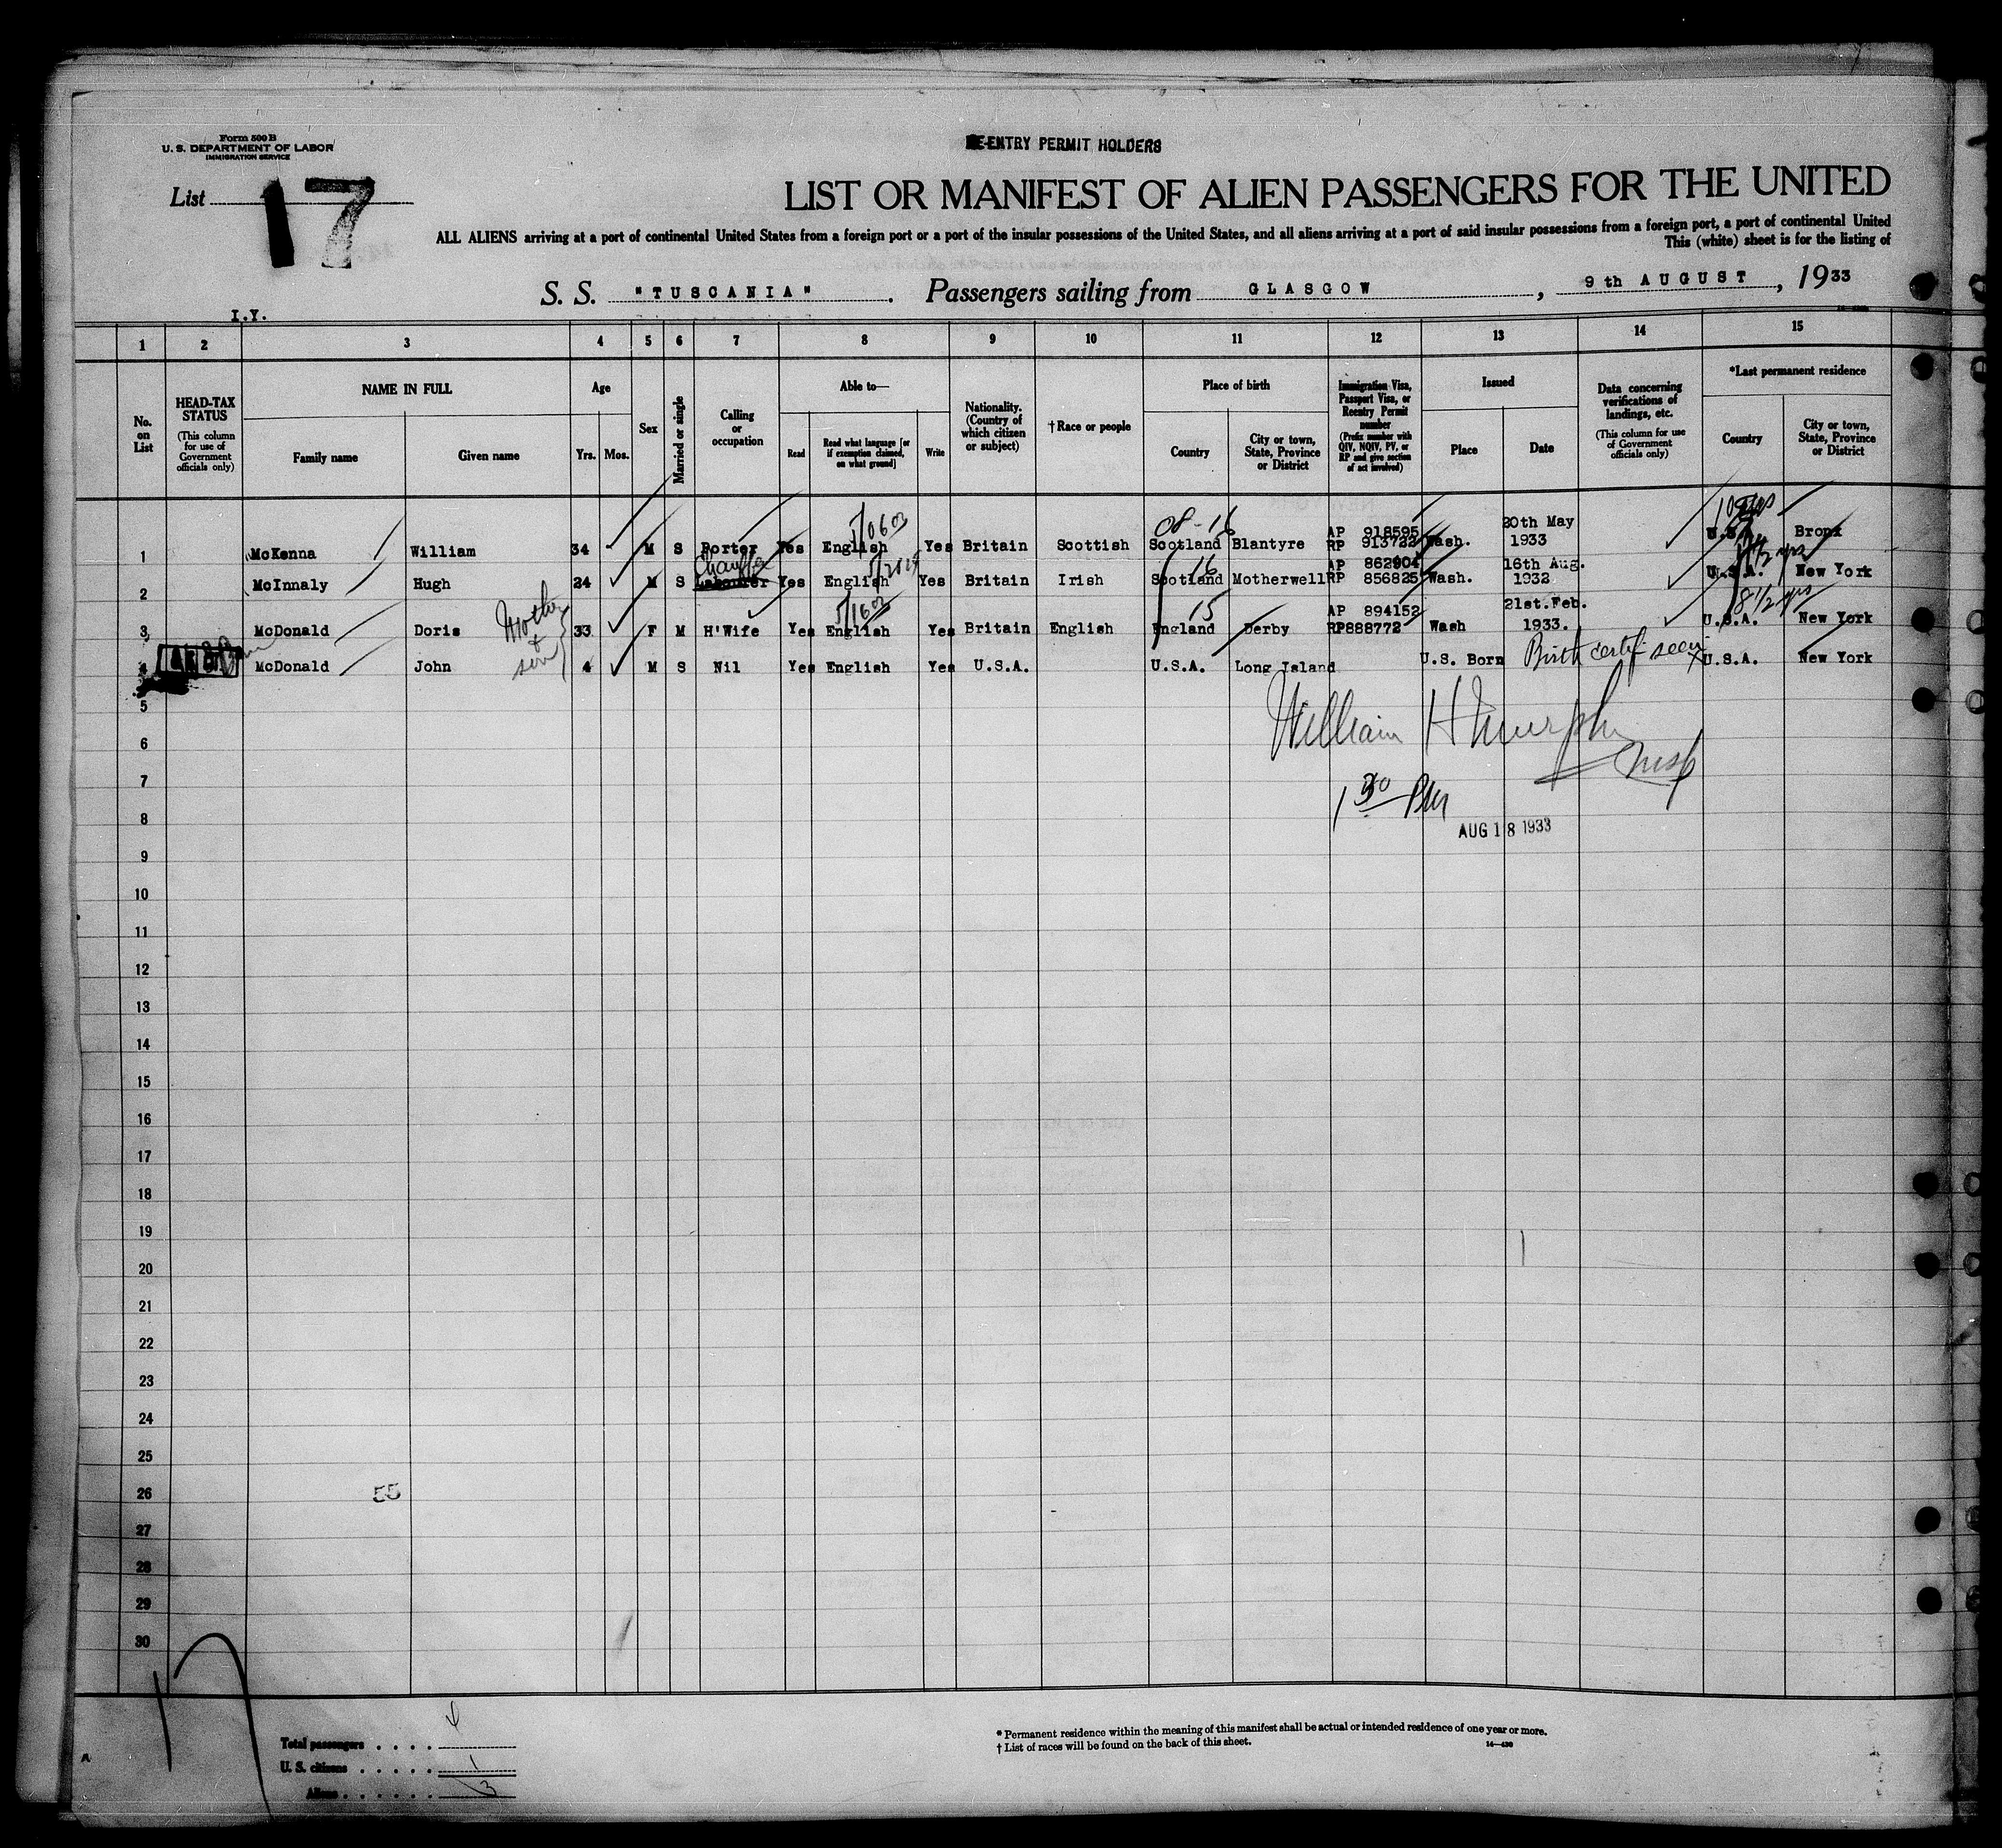 Form 500 B
U. S. DEPARTMENT OF LABOR
IMMIGRATION SERVICE
RE-ENTRY PERMIT HOLDERS
List 17
LIST OR MANIFEST OF ALIEN PASSENGERS FOR THE UNITED
ALL ALIENS arriving at a port of continental United States from a foreign port or a port of the insular possessions of the United States, and all aliens arriving at a port of said insular possessions from a foreign port, a port of continental United
This (white) sheet is for the listing of
S. S. "TUSCANIA". Passengers sailing from GLASGOW, 9th AUGUST, 1933
I.Y.
1 2 3 4 5 6 7 8 9 10 11 12 13 14 15
No. on List
HEAD-TAX STATUS (This column for use of Government officials only)
NAME IN FULL
Family name
Given name
Age
Yrs. Mos.
Sex
Married or single
Calling or occupation
Able to—
Read
Read what language [or if exemption claimed, on what ground]
Write
Nationality. (Country of which citizen or subject)
†Race or people
Place of birth
Country
City or town, State, Province or District
Immigration Visa, Passport Visa, or Reentry Permit number (Prefix number with QIV, NQIV, PV, or RP and give section of act involved)
Issued
Place
Date
Data concerning verifications of landings, etc. (This column for use of Government officials only)
*Last permanent residence
Country
City or town, State, Province or District
5/0603 08-16 AP 918595 20th May 10 yrs
1 McKenna William 34 M S Porter Yes English Yes Britain Scottish Scotland Blantyre RP 913722 Wash. 1933 U.S.A. Bronx
Chauffer 16 AP 862904 16th Aug. 1/2 yrs
2 McInnaly Hugh 24 M S Labourer Yes English Yes Britain Irish Scotland Motherwell RP 856825 Wash. 1932 U.S.A. New York
5/1603 15 AP 894152 21st.Feb. 8 1/2 yrs
3 McDonald Doris 33 F M H'Wife Yes English Yes Britain English England Derby RP888772 Wash 1933. U.S.A. New York
Mother & son
4 McDonald John 4 M S Nil Yes English Yes U.S.A. U.S.A. Long Island U.S. Born Birth certif seen U.S.A. New York
5
William H Murphy
6
Insp
7
1 30 PM
8
AUG 18 1933
9
10
11
12
13
14
15
16
17
18
19
20
21
22
23
24
25
26
55
27
28
29
30
17
Total passengers . . . . 4
U. S. citizens . . . . . 1
Aliens . . . . . . 3
* Permanent residence within the meaning of this manifest shall be actual or intended residence of one year or more.
† List of races will be found on the back of this sheet.
14—430